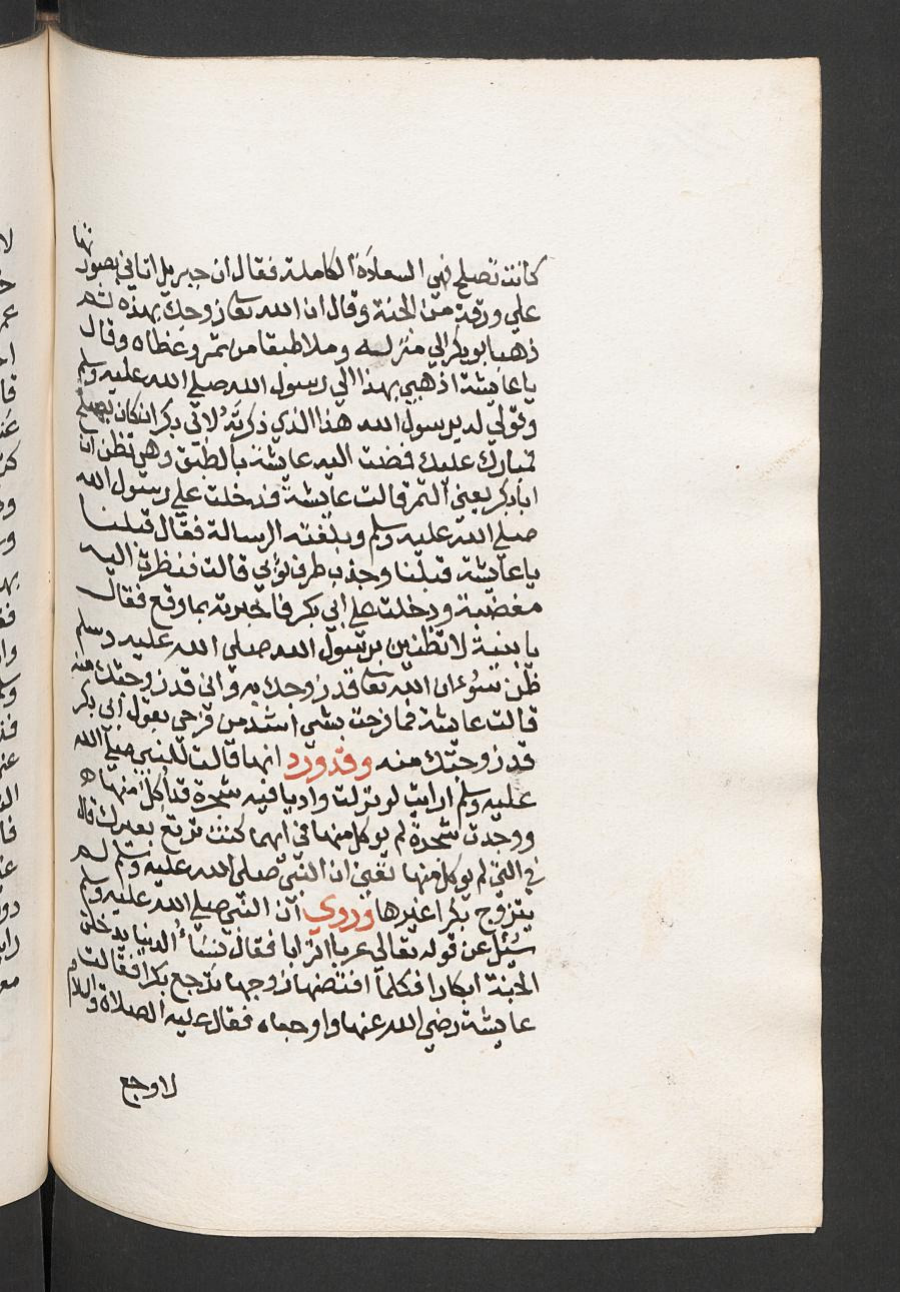 كانت تصلح فهي السعادة الكاملة فقال ان جبريل اتاني بصورتها
علي ورقة من الجنة وقال ان الله تعا زوجك بهذه ثم
ذهب ابو بكر الي منزله وملا طبقا من تمر وغطاه وقال
يا عايشة اذهبي بهذا الي رسول الله صلي الله عليه وسلم
وقولي له يرسول الله هذا الذي ذكرته لابي بكر ان كان يصلح
فمبارك عليك فمضت اليه عايشة بالطبق وهي تظن ان
ابا بكر يعني التمر قالت عايشة فدخلت علي رسول الله
صلي الله عليه وسلم وبلغته الرسالة فقال قبلنا
يا عايشة قبلنا وجذب طرف ثوبي قالت فنظرت اليه
مغضبة ودخلت علي ابي بكر فاخبرته بما وقع فقال
يا بنية لا تظنين برسول الله صلي الله عليه وسلم
ظن سوء ان الله تعا قد زوجك به واني قد زوجتك منه
قالت عايشة فما فرحت بشي اشد من فرحي بقول ابي بكر
قد زوجتك منه وقد ورد انها قالت للنبي صلي الله
عليه وسلم ارايت لو نزلت واديا فيه شجرة قد اكل منها
ووجدت شجرة لم يوكل منها في ايهما كنت ترتع بعيرك قال
في التي لم يوكل منها تعني ان النبي صلي الله عليه وسلم لم
يتزوج بكرا غيرها وروي ان النبي صلي الله عليه وسلم
سئل عن قوله تعالي عربا اترابا فقال نساء الدنيا يدخلن
الجنة ابكارا فكلما افتضها زوجها ترجع بكرا فقالت
عايشة رضي الله عنها وا وجعاه فقال عليه الصلاة والسلام
لا وجع